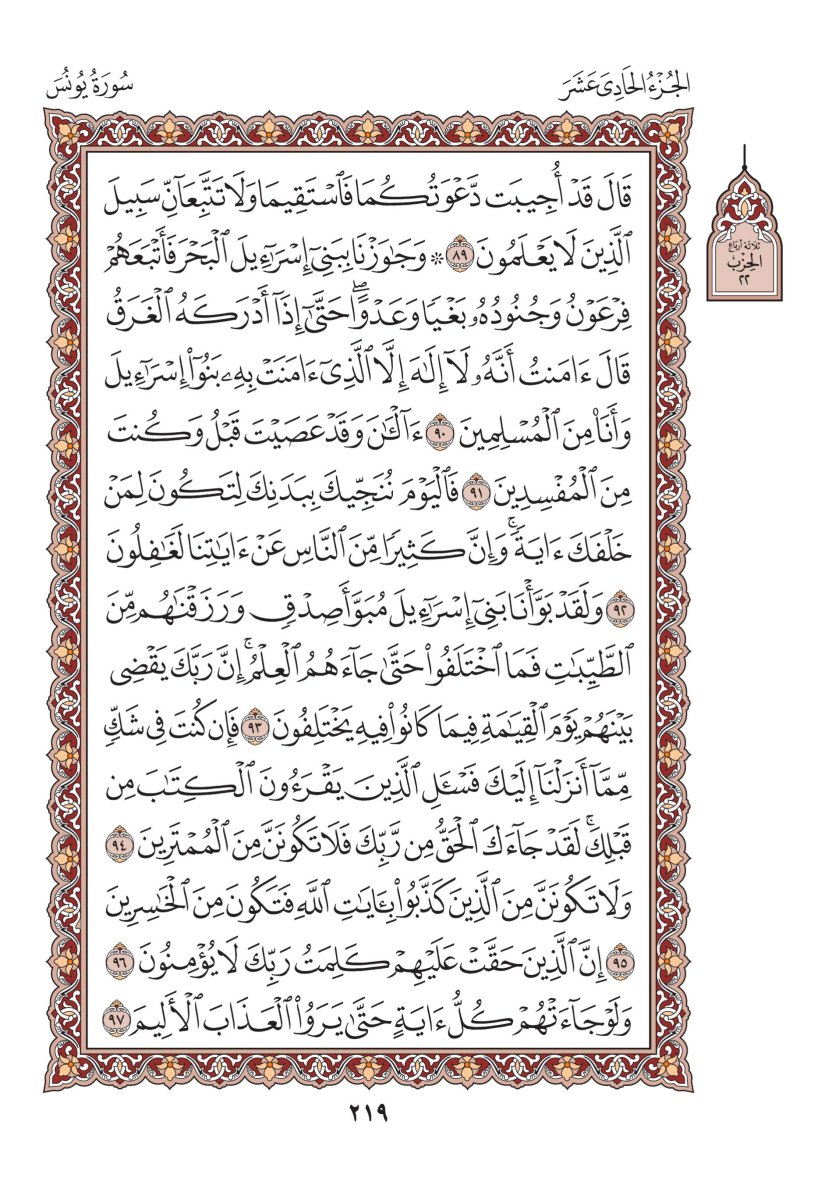 الجُزْءُ الحَادِيَ عَشَرَ
سُورَةُ يُونُسَ
قَالَ قَدْ أُجِيبَت دَّعْوَتُكُمَا فَٱسْتَقِيمَا وَلَا تَتَّبِعَآنِّ سَبِيلَ
ٱلَّذِينَ لَا يَعْلَمُونَ ٨٩ ۞ وَجَٰوَزْنَا بِبَنِيٓ إِسْرَٰٓءِيلَ ٱلْبَحْرَ فَأَتْبَعَهُمْ
فِرْعَوْنُ وَجُنُودُهُۥ بَغْيًا وَعَدْوًاۖ حَتَّىٰٓ إِذَآ أَدْرَكَهُ ٱلْغَرَقُ
قَالَ ءَامَنتُ أَنَّهُۥ لَآ إِلَٰهَ إِلَّا ٱلَّذِيٓ ءَامَنَتْ بِهِۦ بَنُوٓا۟ إِسْرَٰٓءِيلَ
وَأَنَا۠ مِنَ ٱلْمُسْلِمِينَ ٩٠ ءَآلْـَٰٔنَ وَقَدْ عَصَيْتَ قَبْلُ وَكُنتَ
مِنَ ٱلْمُفْسِدِينَ ٩١ فَٱلْيَوْمَ نُنَجِّيكَ بِبَدَنِكَ لِتَكُونَ لِمَنْ
خَلْفَكَ ءَايَةًۚ وَإِنَّ كَثِيرًا مِّنَ ٱلنَّاسِ عَنْ ءَايَٰتِنَا لَغَٰفِلُونَ
٩٢ وَلَقَدْ بَوَّأْنَا بَنِيٓ إِسْرَٰٓءِيلَ مُبَوَّأَ صِدْقٍ وَرَزَقْنَٰهُم مِّنَ
ٱلطَّيِّبَٰتِ فَمَا ٱخْتَلَفُوا۟ حَتَّىٰ جَآءَهُمُ ٱلْعِلْمُۚ إِنَّ رَبَّكَ يَقْضِي
بَيْنَهُمْ يَوْمَ ٱلْقِيَٰمَةِ فِيمَا كَانُوا۟ فِيهِ يَخْتَلِفُونَ ٩٣ فَإِن كُنتَ فِي شَكٍّ
مِّمَّآ أَنزَلْنَآ إِلَيْكَ فَسْـَٔلِ ٱلَّذِينَ يَقْرَءُونَ ٱلْكِتَٰبَ مِن
قَبْلِكَۚ لَقَدْ جَآءَكَ ٱلْحَقُّ مِن رَّبِّكَ فَلَا تَكُونَنَّ مِنَ ٱلْمُمْتَرِينَ ٩٤
وَلَا تَكُونَنَّ مِنَ ٱلَّذِينَ كَذَّبُوا۟ بِـَٔايَٰتِ ٱللَّهِ فَتَكُونَ مِنَ ٱلْخَٰسِرِينَ
٩٥ إِنَّ ٱلَّذِينَ حَقَّتْ عَلَيْهِمْ كَلِمَتُ رَبِّكَ لَا يُؤْمِنُونَ ٩٦
وَلَوْ جَآءَتْهُمْ كُلُّ ءَايَةٍ حَتَّىٰ يَرَوُا۟ ٱلْعَذَابَ ٱلْأَلِيمَ ٩٧
ثلاثة أرباع
الحِزْب
٢٢
٢١٩